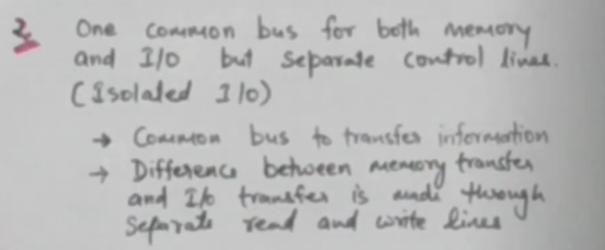 2. One common bus for both memory
and I/O but separate control lines.
(Isolated I/O)
→ Common bus to transfer information
→ Difference between memory transfer
and I/o transfer is made through
Separate read and write lines